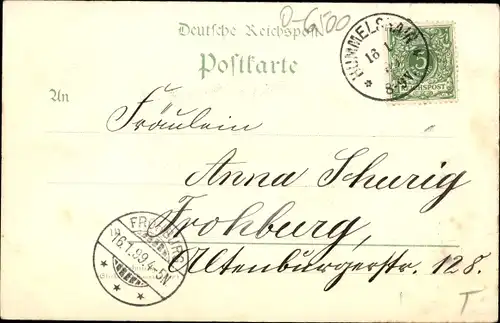 D-6500
Deutsche Reichspost
Postkarte
HUMMELSHAIN
16 1
8-9V
5
REICHSPOST
An
Fräulein
Anna Schurig
Frohburg,
Altenburgerstr. 128.
FROHBURG
16.1.99.4-5N
T